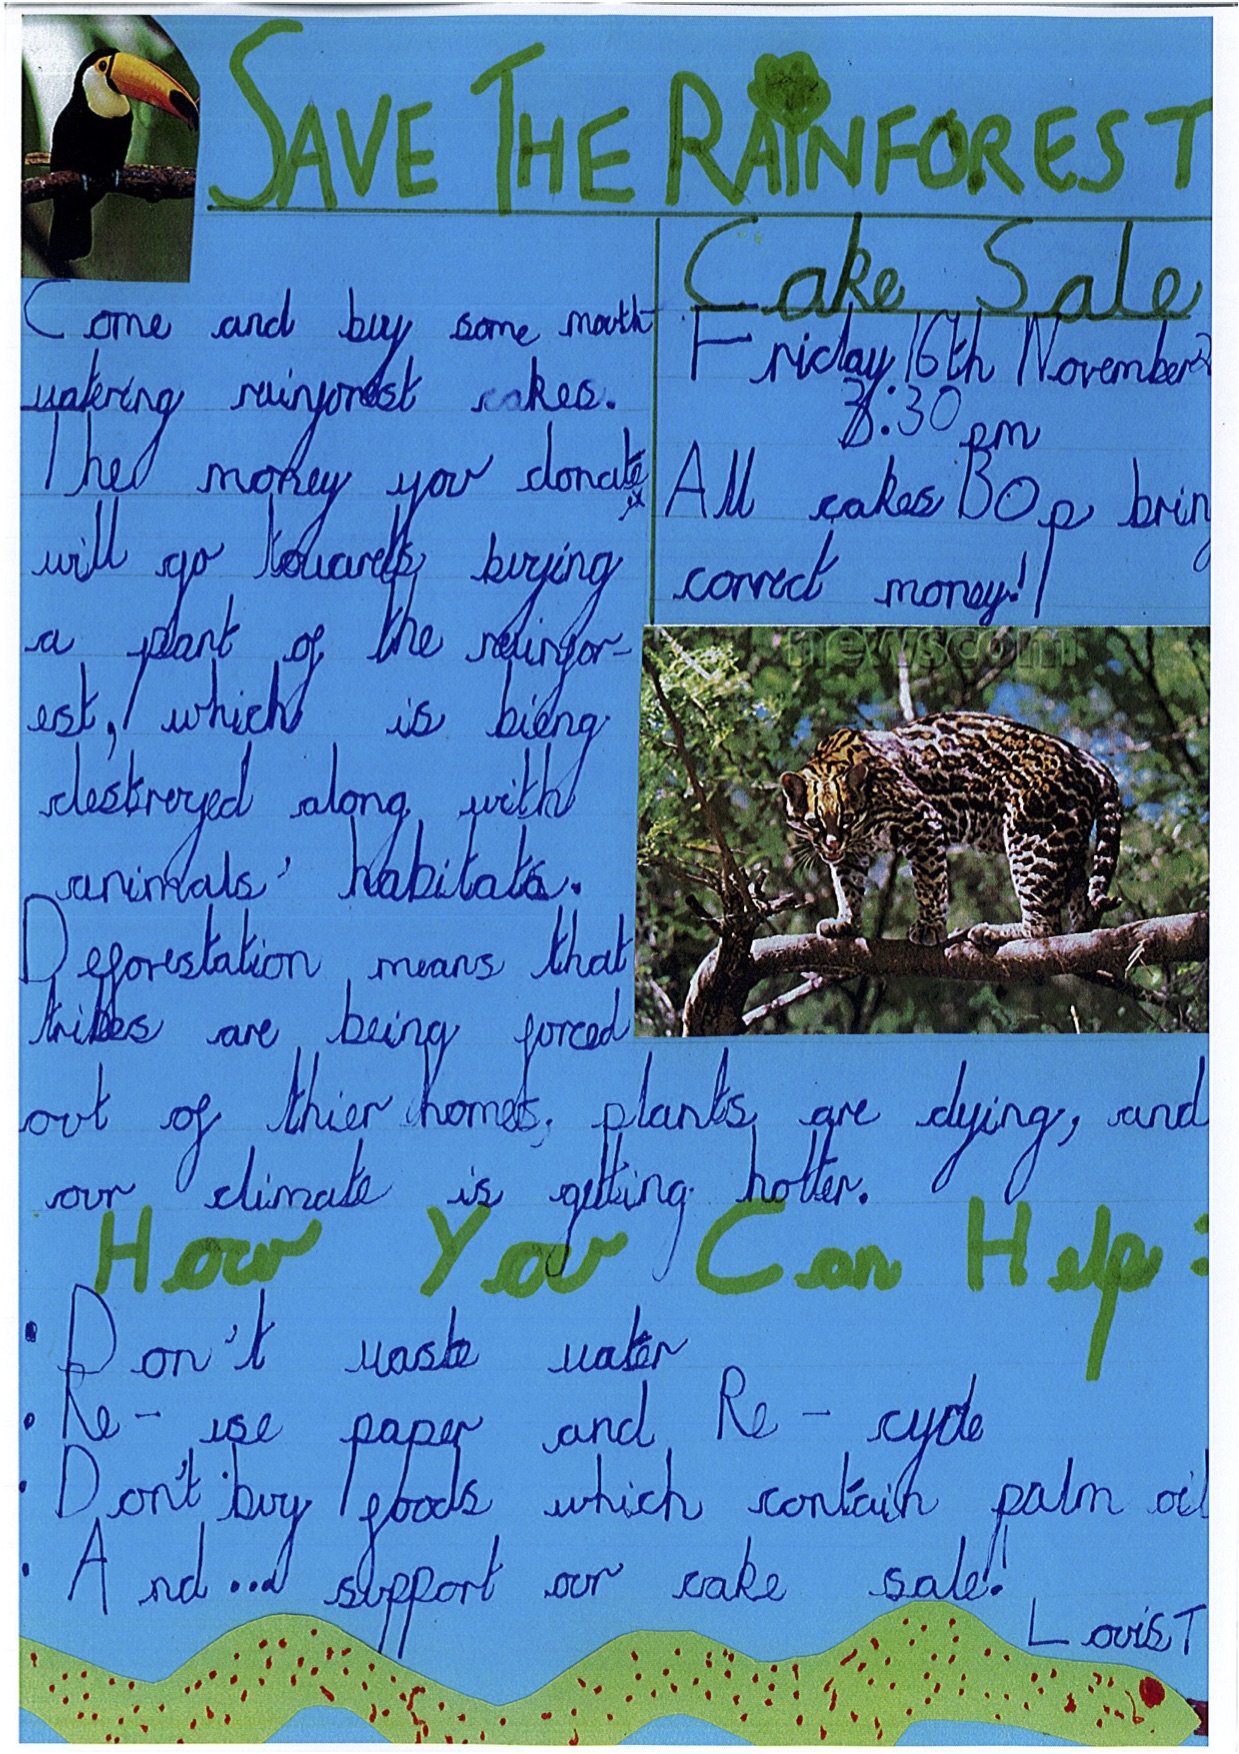 SAVE THE RAINFOREST
Come and buy some mouth
watering rainforest cakes.
The money you donate
will go towards buying
a plant of the rainfor-
est, which is bieng
destroyed along with
animals' habitats.
Deforestation means that
tribes are being forced
out of thier homes, plants are dying, and
our climate is getting hotter.
Cake Sale
Friday 16th November
3:30 pm
All cakes 50p bring
correct money!
newscom
How You Can Help:
• Don't waste water
• Re-use paper and Re-cycle
• Don't buy goods which contain palm oil
• And... support our cake sale!
Louis T